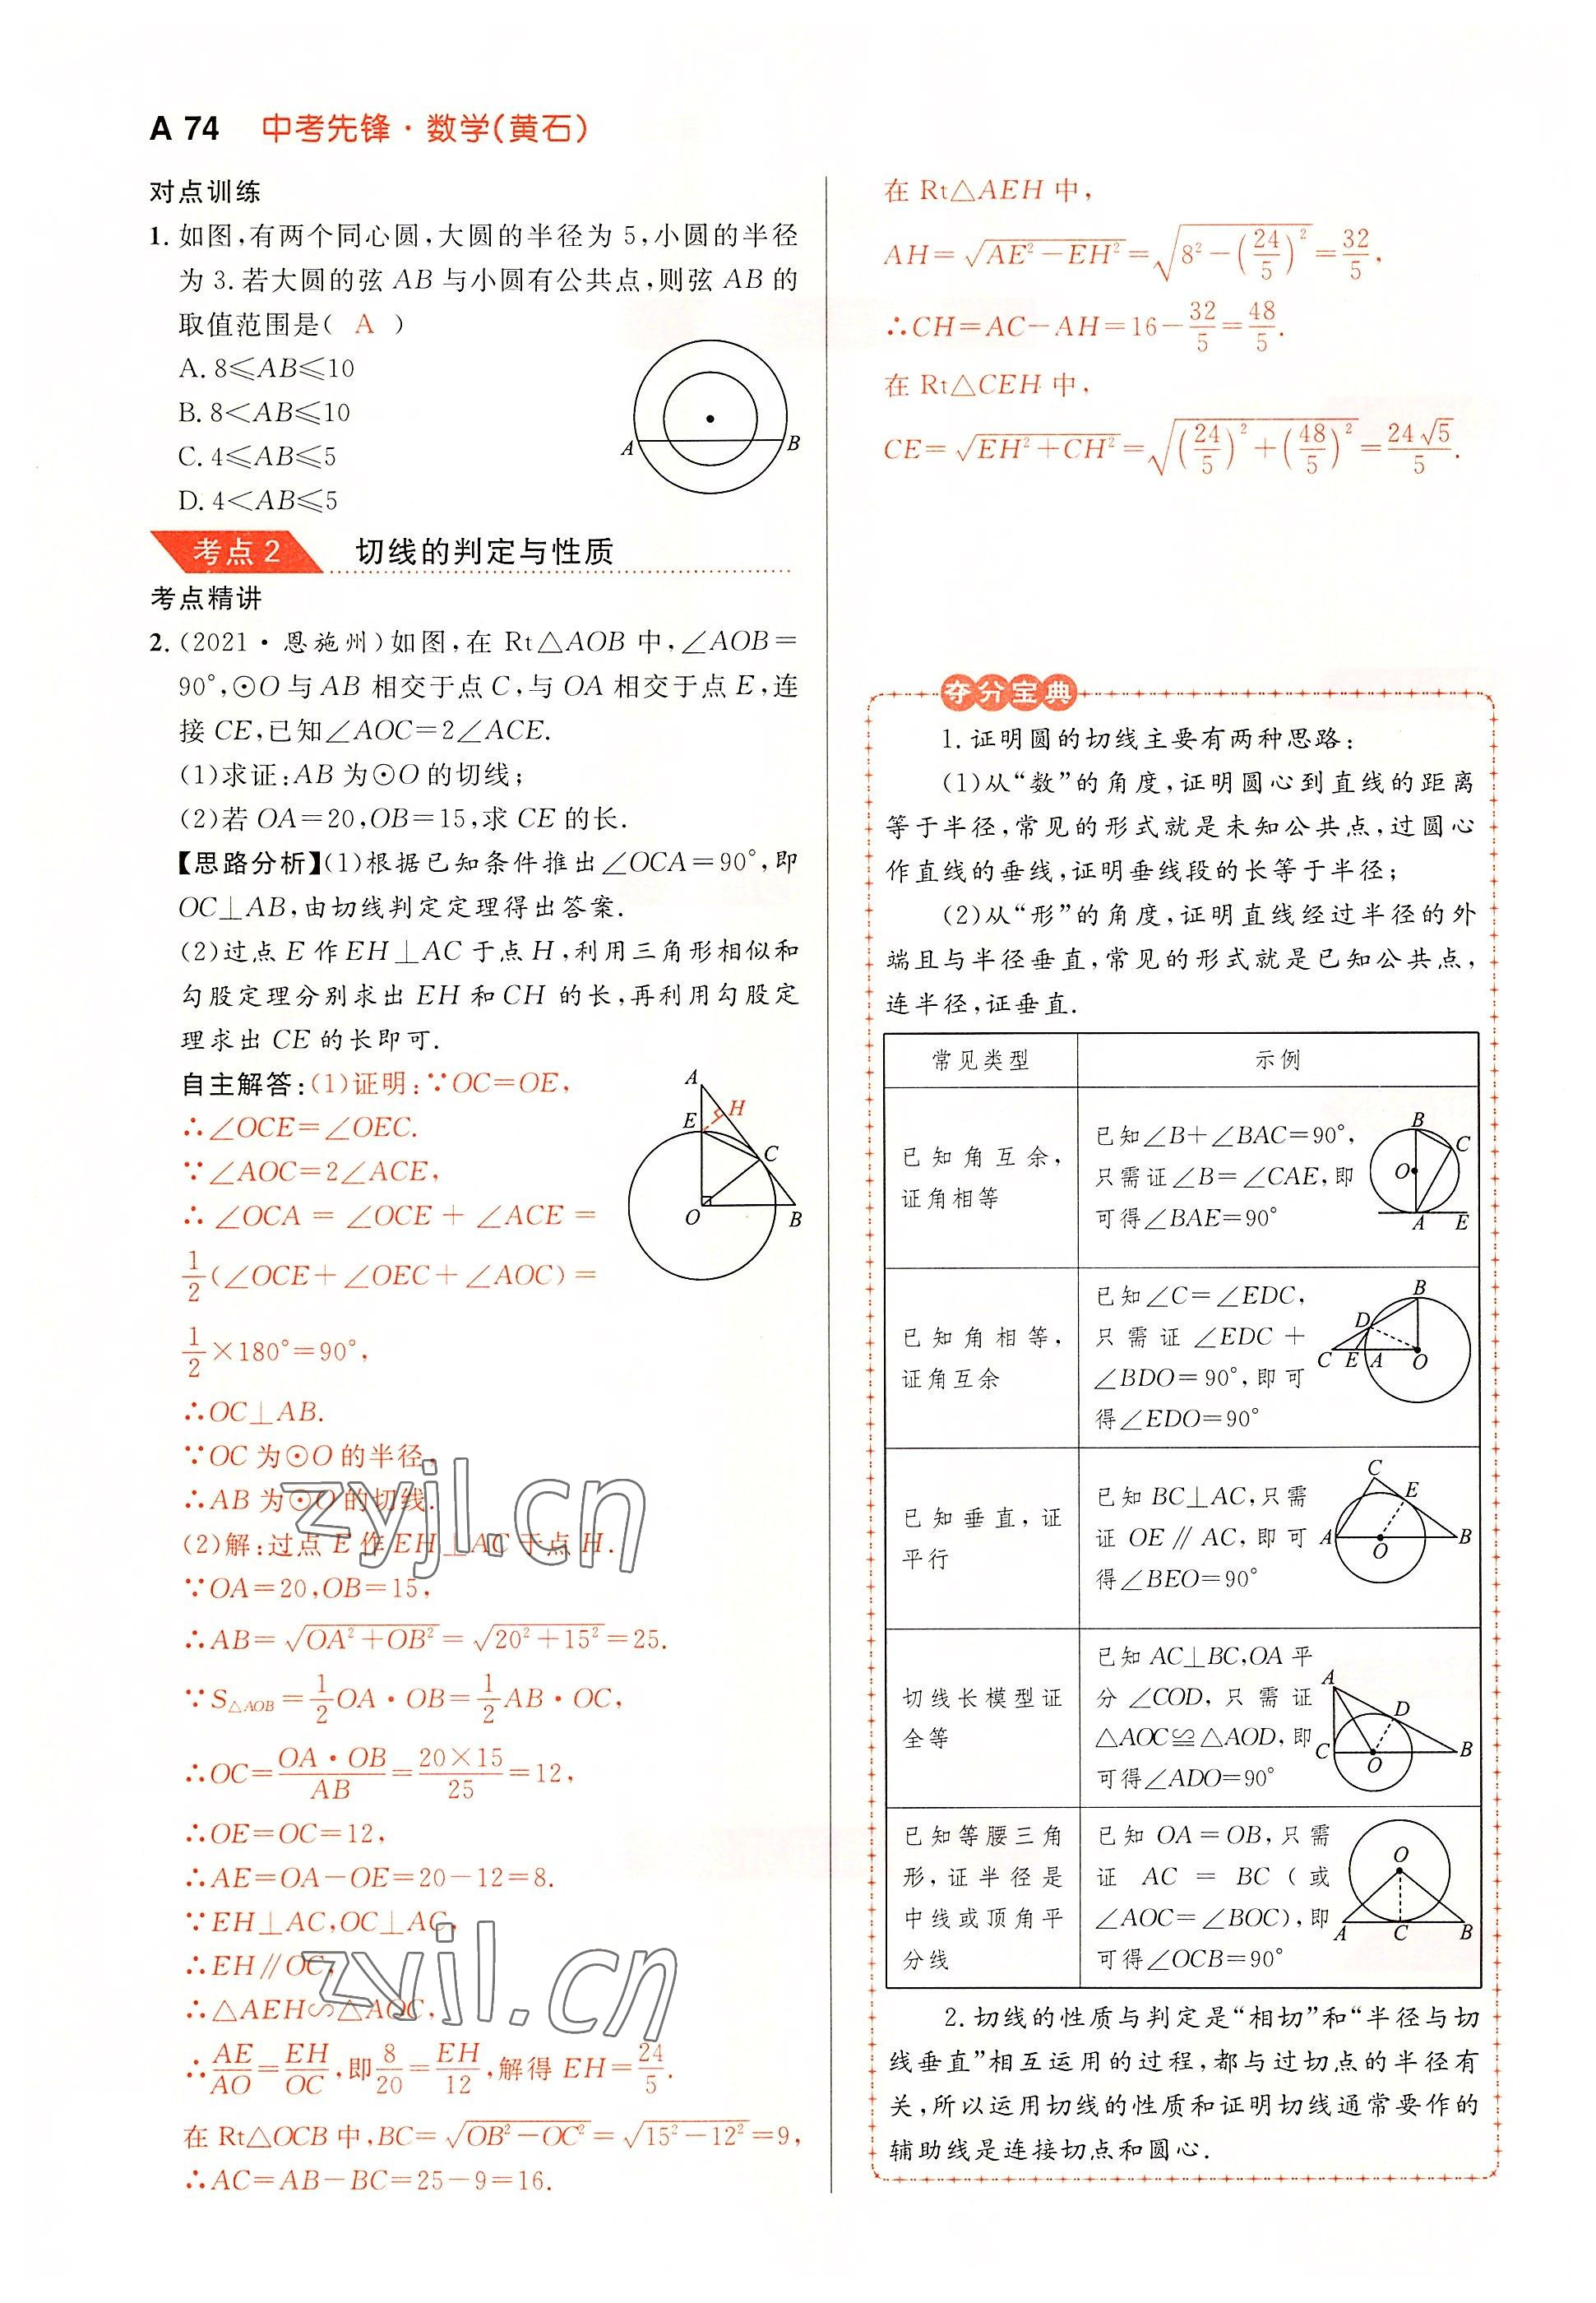 A 74 中考先锋·数学(黄石)
对点训练
1. 如图,有两个同心圆,大圆的半径为5,小圆的半径
为3.若大圆的弦AB与小圆有公共点,则弦AB的
取值范围是( A )
A. 8≤AB≤10
B. 8<AB≤10
C. 4≤AB≤5
D. 4<AB≤5
A B
考点2 切线的判定与性质
考点精讲
2. (2021·恩施州)如图,在Rt△AOB中,∠AOB=
90°,⊙O与AB相交于点C,与OA相交于点E,连
接CE,已知∠AOC=2∠ACE.
(1)求证:AB为⊙O的切线;
(2)若OA=20,OB=15,求CE的长.
【思路分析】(1)根据已知条件推出∠OCA=90°,即
OC⊥AB,由切线判定定理得出答案.
(2)过点E作EH⊥AC于点H,利用三角形相似和
勾股定理分别求出EH和CH的长,再利用勾股定
理求出CE的长即可.
自主解答:(1)证明:∵OC=OE,
∴∠OCE=∠OEC.
∵∠AOC=2∠ACE,
∴∠OCA=∠OCE+∠ACE=
1/2(∠OCE+∠OEC+∠AOC)=
1/2×180°=90°,
A E H C O B
∴OC⊥AB.
∵OC为⊙O的半径,
∴AB为⊙O的切线.
(2)解:过点E作EH⊥AC于点H.
∵OA=20,OB=15,
∴AB=√(OA²+OB²)=√(20²+15²)=25.
∵S△AOB=1/2OA·OB=1/2AB·OC,
∴OC=OA·OB/AB=20×15/25=12,
∴OE=OC=12,
∴AE=OA-OE=20-12=8.
∵EH⊥AC,OC⊥AC,
∴EH∥OC,
∴△AEH∽△AOC,
∴AE/AO=EH/OC,即8/20=EH/12,解得EH=24/5.
在Rt△OCB中,BC=√(OB²-OC²)=√(15²-12²)=9,
∴AC=AB-BC=25-9=16.
zyjl.cn
zyjl.cn
在Rt△AEH中,
AH=√(AE²-EH²)=√(8²-(24/5)²)=32/5,
∴CH=AC-AH=16-32/5=48/5.
在Rt△CEH中,
CE=√(EH²+CH²)=√((24/5)²+(48/5)²)=24√5/5.
夺分宝典
1.证明圆的切线主要有两种思路:
(1)从“数”的角度,证明圆心到直线的距离
等于半径,常见的形式就是未知公共点,过圆心
作直线的垂线,证明垂线段的长等于半径;
(2)从“形”的角度,证明直线经过半径的外
端且与半径垂直,常见的形式就是已知公共点,
连半径,证垂直.
常见类型 示例
已知角互余,
证角相等
已知∠B+∠BAC=90°,
只需证∠B=∠CAE,即
可得∠BAE=90°
B C O A E
已知角相等,
证角互余
已知∠C=∠EDC,
只需证∠EDC+
∠BDO=90°,即可
得∠EDO=90°
B D C E A O
已知垂直,证
平行
已知BC⊥AC,只需
证OE∥AC,即可
得∠BEO=90°
C E A O B
切线长模型证
全等
已知AC⊥BC,OA平
分∠COD,只需证
△AOC≌△AOD,即
可得∠ADO=90°
A D C O B
已知等腰三角
形,证半径是
中线或顶角平
分线
已知OA=OB,只需
证AC=BC(或
∠AOC=∠BOC),即
可得∠OCB=90°
O A C B
2.切线的性质与判定是“相切”和“半径与切
线垂直”相互运用的过程,都与过切点的半径有
关,所以运用切线的性质和证明切线通常要作的
辅助线是连接切点和圆心.